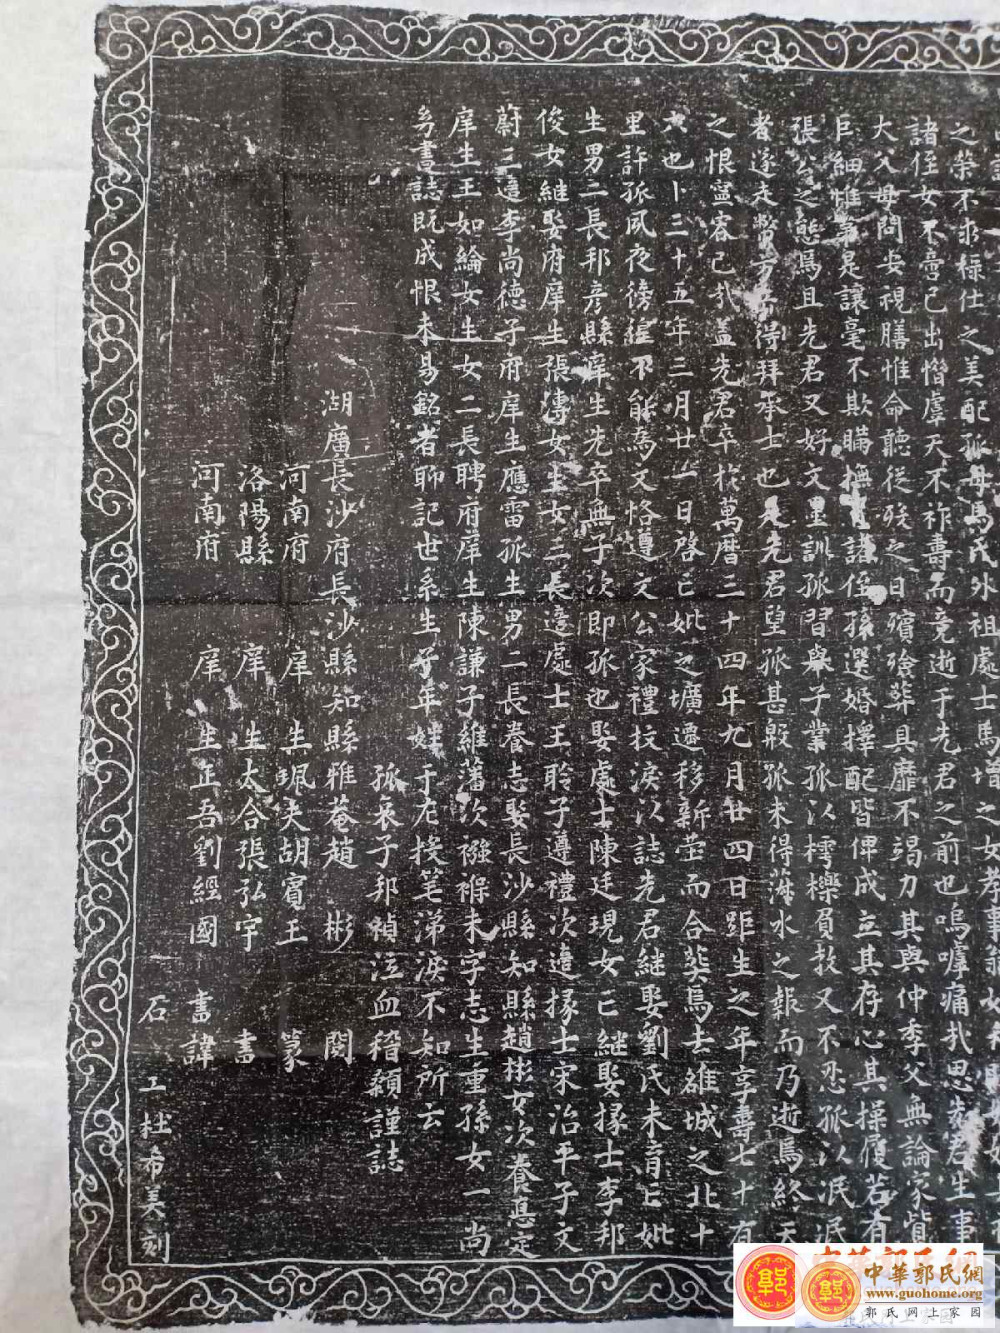 之荣不求禄仕之美配孤母馬氏外祖處士馬增之女孝事翁
諸侄女不啻己出惜虖天不祚壽而竟逝于先君之前也嗚嘑痛㢤思先君生事
大父母問安視膳惟命聽從殁之日殯殮葬具靡不竭力其與仲季父無論家貲
巨細惟弟是讓毫不欺瞞撫諸侄孫選婚擇配皆俾成立其存心其操履若有
張公之態焉且先君又好文墨訓孤習舉子業孤以樗櫟負教又不忍孤以泯泯
者遂走幣得拜承士也先君望孤甚殷孤未得菽水之報而乃逝焉終天
之恨寧容已㢤盖先君卒於萬曆三十四年九月廿四日距生之年享壽七十有
六也卜三十五年三月廿一日啓亡妣之壙遷移新茔而合葬焉去雒城之北十
里許孤夙夜徬徨不能爲文恪遵文公家禮抆淚以誌先君継娶劉氏未育亡妣
生男二長邦彦縣庠生先卒無子次即孤也娶處士陳廷現女亡継娶掾士李邦
俊女継娶府庠生張溥女生女三長適處士王聆子遵禮次適掾士宋治平子文
蔚三適李尚德子府庠生應雷孤生男二長養志娶長沙縣知縣趙彬女次養惪定
庠生王如綸女生女二長聘府庠生陳謙子維藩次襁褓未字志生重孫女一尚
㓜書誌既成恨未易銘者聊記世系生子年娃于左授笔涕淚不知所云
孤哀子邦禎泣血稽顙謹誌
湖廣長沙府長沙縣知縣雅菴趙彬閱
河南府庠生珮夫胡賓王篆
洛陽縣庠生太合張弘宇書
河南府庠生正吾劉經國書諱
石工杜希美刻
中華郭氏網
www.guohome.org
郭氏网上家园